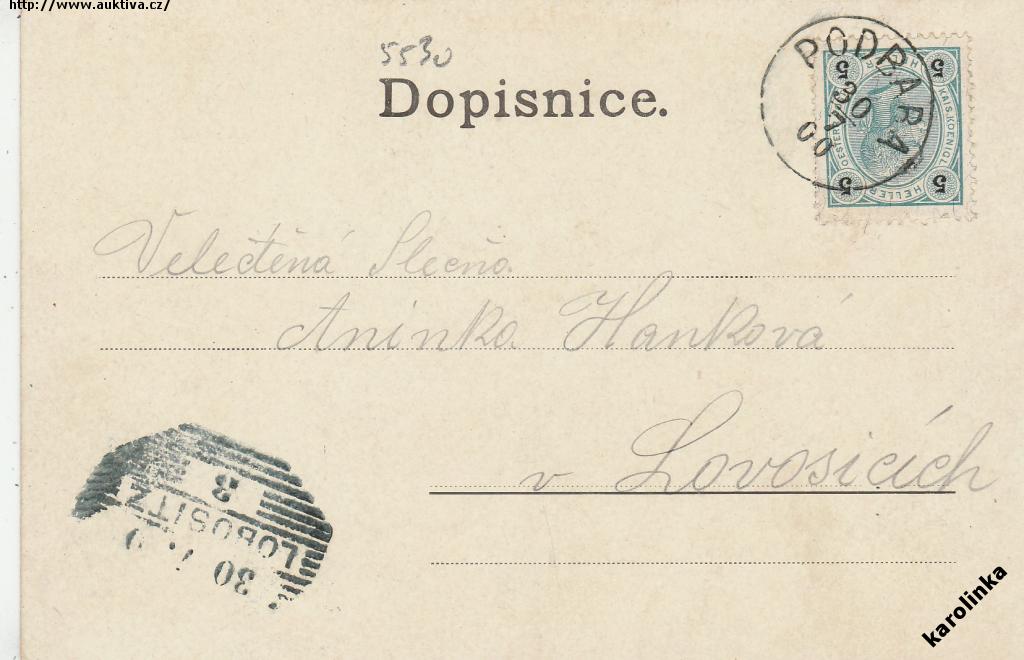 http://www.auktiva.cz/
5530
Dopisnice.
PODBABA
30 7 00
5 5 5 5
KAIS. KOENIGL.
HELLER
Velectěná Slečna
Aninka Hanková
v Lovosicích
LOBOSITZ
30 7
karolinka